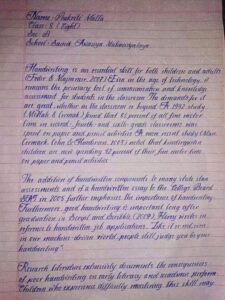 Name:- Prakriti Malla
Class: 8 (Eight)
Sec: B
School:
Handwriting is an essential skill for both children and adults
(Feder & Majnemer, 2007). Even in the age of technology, it
remains the primary tool of communication and knowledge
assessment for students in the classroom. The demands for it
are great, whether in the classroom or beyond. A 1992 study
(McHale & Cermak) found that 85 percent of all fine motor
time in second-, fourth- and sixth-grade classrooms was
spent on paper and pencil activities. A more recent study (Marr,
Cermak, Cohn & Henderson, 2003) noted that kindergarten
children are now spending 42 percent of their fine motor time
on paper and pencil activities.
The addition of handwritten components to many state
assessments and of a handwritten essay to the College Board
SAT in 2005 further emphasize the importance of handwriting.
Furthermore, good handwriting is important long after
graduation. In Script and Scribble (2009), Florey writes in
reference to handwritten job applications, "Like it or not, even
in our machine-driven world, people still judge you by your
handwriting".
Research literature extensively documents the consequences
of poor handwriting on early literacy and academic performance.
Children who experience difficulty mastering this skill may